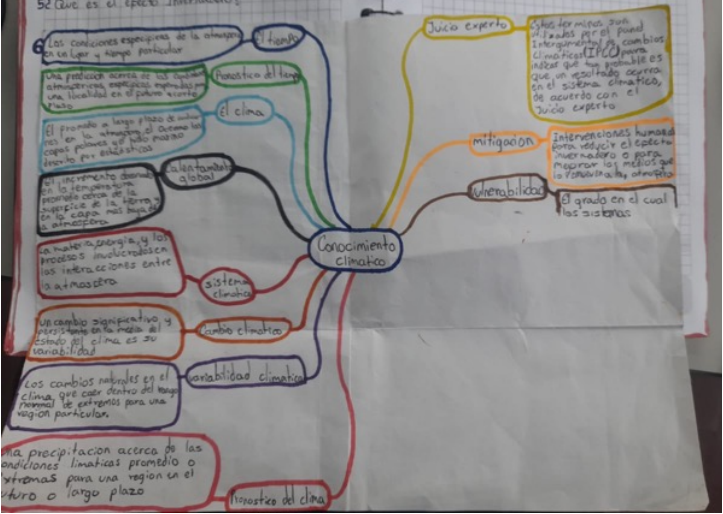 5¿Que es el efecto Invernadero?
Las condiciones especificas de la atmosfera
en un lugar y tiempo particular
El tiempo
Una prediccion acerca de las
atmosfericas, especificas esperadas para
una localidad en el futuro
plazo
Pronostico del tiempo
El promedio a largo plazo de
nes en la atmosfera el oceano las
capas polares y
descrito por estadisticas
El clima
El incremento observado
en la temperatura
promedio cerca de la
superficie de la tierra y
en la capa mas baja de
la atmosfera
Calentamiento
global
La materia, energia, y los
procesos involucrados en
las interacciones entre
la atmosfera
sistema
climatico
un cambio significativo, y
persistente en la media del
estado del clima es su
variabilidad
Cambio climatico
Los cambios naturales en el
clima, que caer dentro del rango
normal de extremos para una
region particular.
variabilidad climatica
una precipitacion acerca de las
condiciones limaticas promedio o
extremas para una region en el
futuro o largo plazo
Pronostico del clima
Conocimiento
climatico
Juicio experto
Estos terminos son
utilizados por el panel
Intergumental es cambios
climaticos (IPCC) para
indicar que tan probable es
que un resultado ocurra
en el sistema climatico,
de acuerdo con el
Juicio experto
mitigacion
Intervenciones humanas
para reducir el efecto
invernadero o para
mejorar los medios que
la atmosfera
vulnerabilidad
El grado en el cual
los sistemas